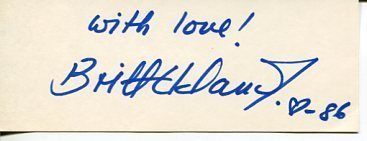 with love!
Britt Ekland
♡-86